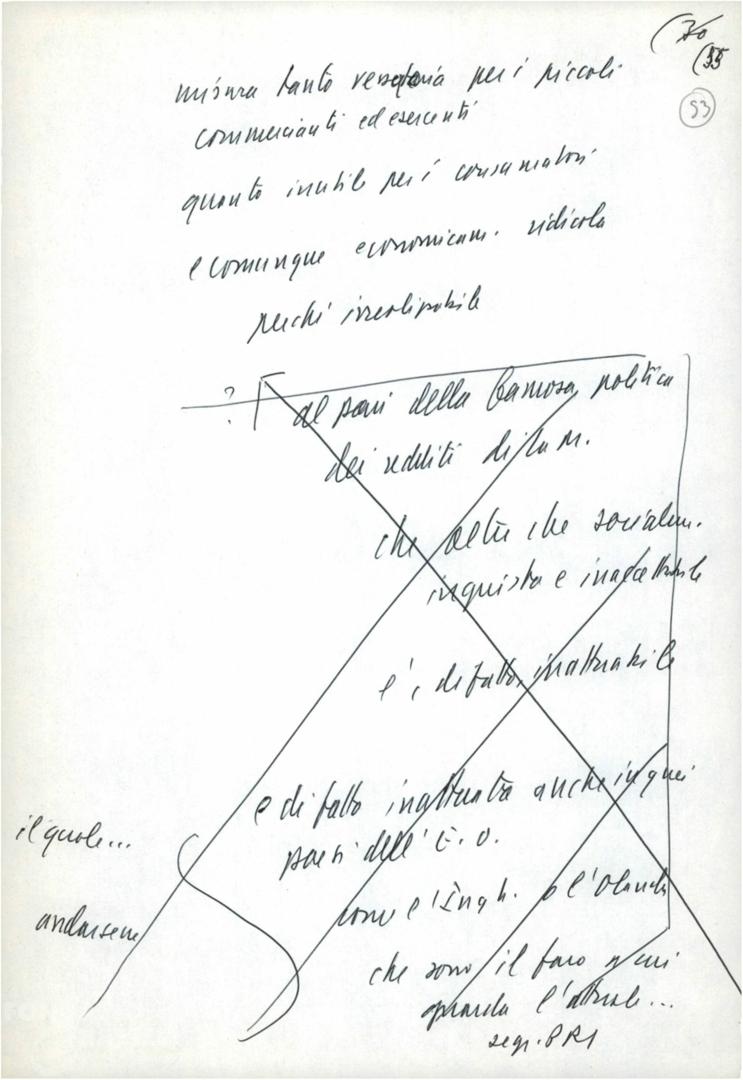 (70
(55
53
misura tanto vessatoria per i piccoli
commercianti ed esercenti
quanto inutile per i consumatori
e comunque economicam. ridicola
perché irrealizzabile
? al pari della famosa politica
dei redditi di La M.
che oltre che socialm.
ingiusta e inaccettabile
è, di fatto, inattuabile
e di fatto inattuata anche in quei
paesi dell'E.O.
come l'Ingh. o l'Olanda
che sono il faro a cui
guarda l'attuale...
segr. PRI
il quale...
andarsene